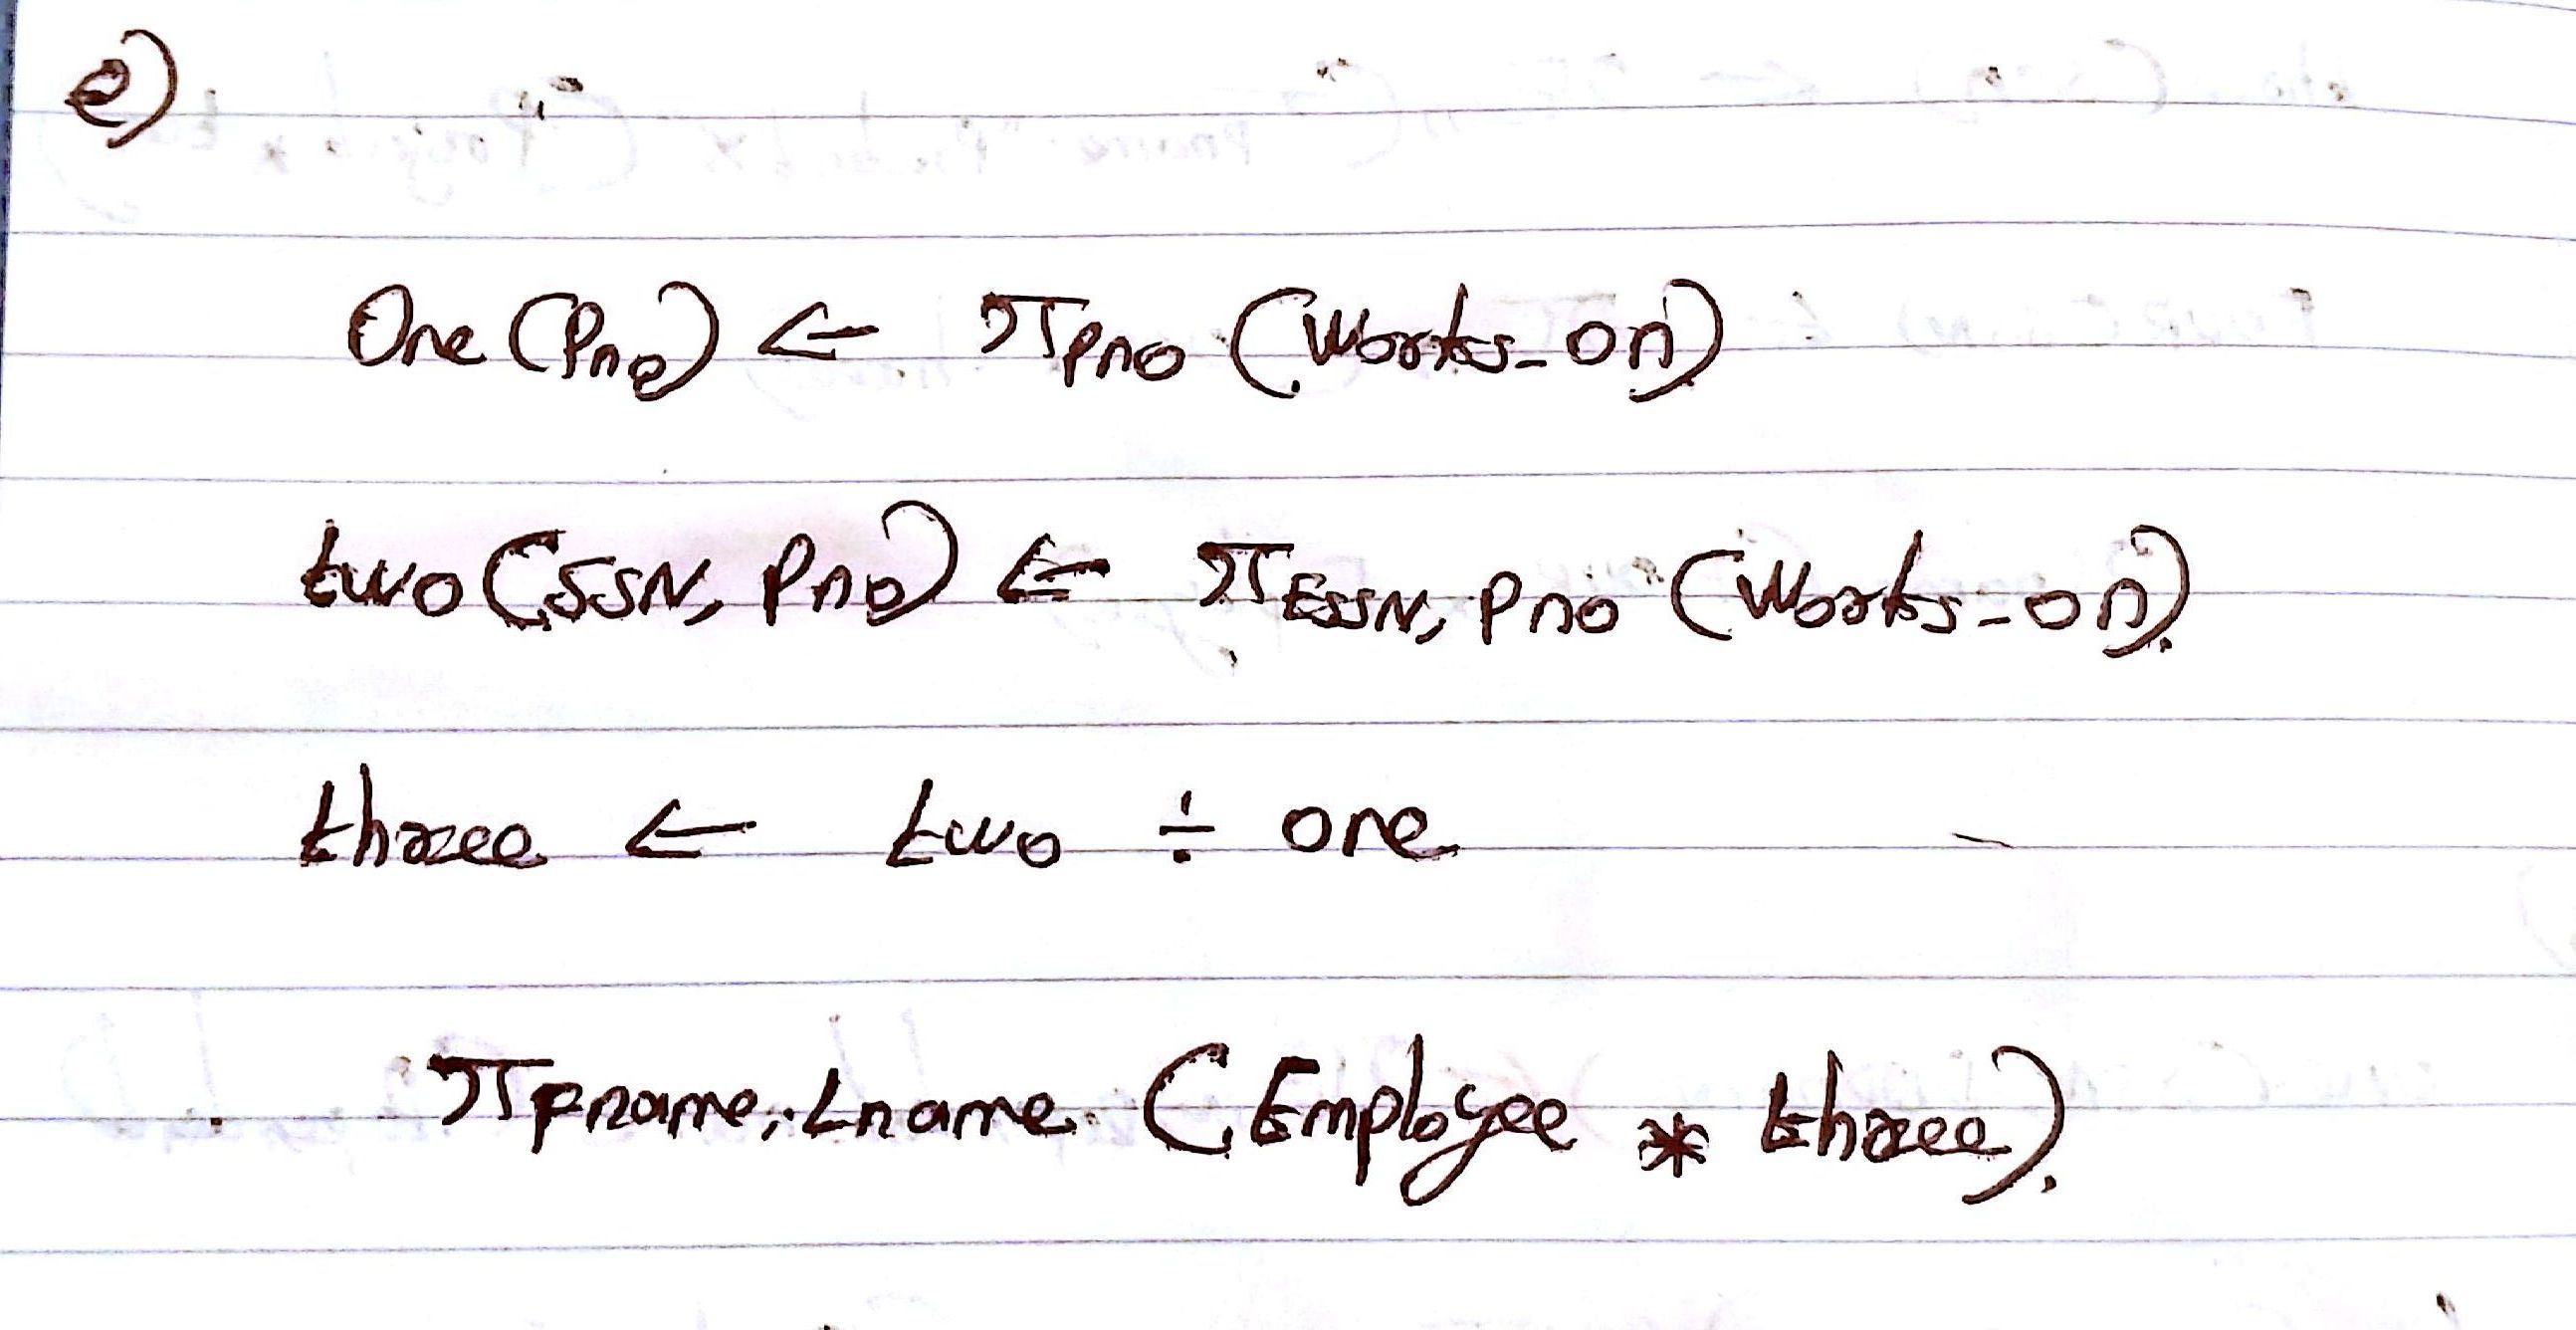 e)
One (Pno) ← π Pno (Works_on)
two (SSN, Pno) ← π ESSN, Pno (Works_on)
three ← two ÷ one
π Fname, Lname (Employee * three)